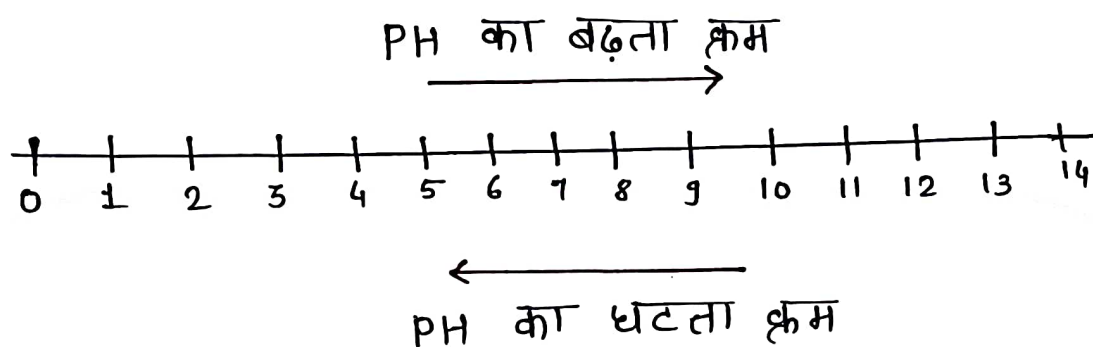 PH का बढ़ता क्रम
0 1 2 3 4 5 6 7 8 9 10 11 12 13 14
PH का घटता क्रम